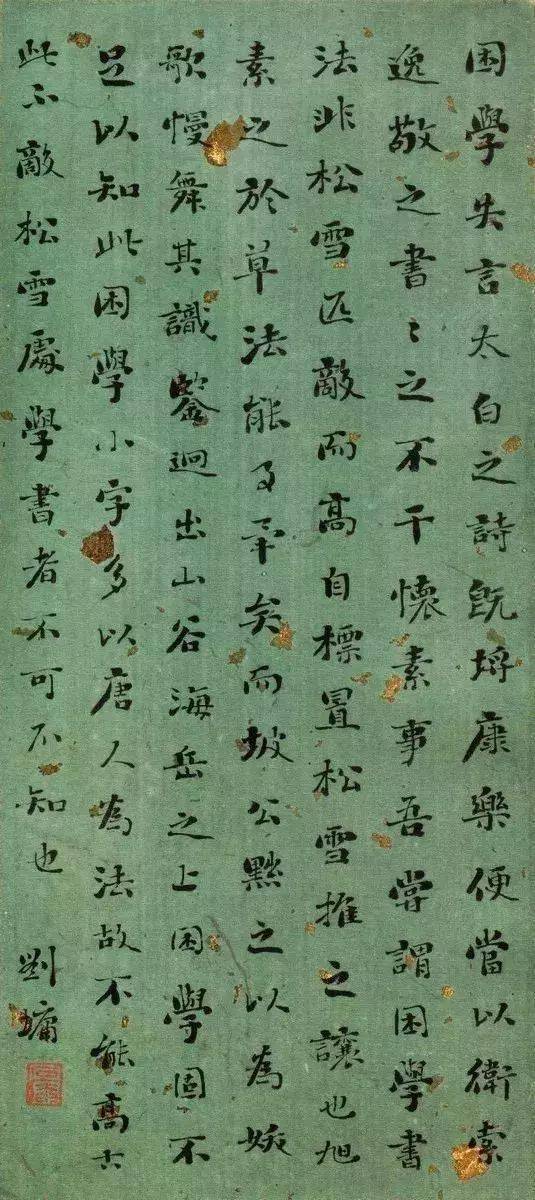 困學失言太白之詩既埒康樂便當以衛索
逸敬之書〻之不干懷素事吾嘗謂困學書
法非松雪匹敵而高自標置松雪推之讓也旭
素之於草法能事卒矣而坡公黜之以為妖
歌慢舞其識鑒迥出山谷海岳之上困學固不
足以知此困學小字多以唐人為法故不能高古
此不敵松雪處學書者不可不知也
劉墉